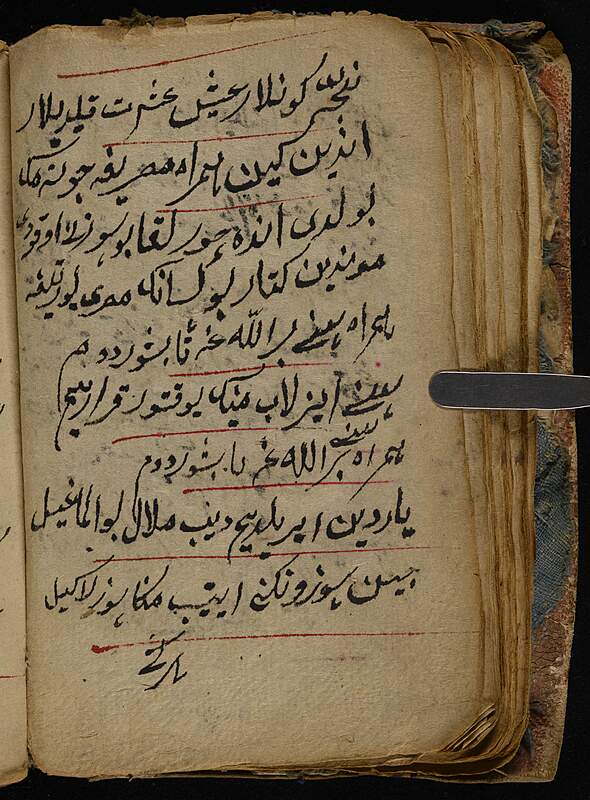 نچه کونلار عیش عشرت قیلدیلار
اندین کین همراه مصریغه جونه مک
بولدی انده حور لقا بو سوزلا اوقودی
موندین کتار بولسانک مصری یورتیغه
همراه سنی بر الله غه تابشوردوم
سنی ایزلاب منیک یوقتور قراریم
همراه سنی بر الله غه تابشوردوم
یاردین ایریلدیم دیب ملال بولماغیل
سوزونکنی ایتیب منکا سوزلاکیل